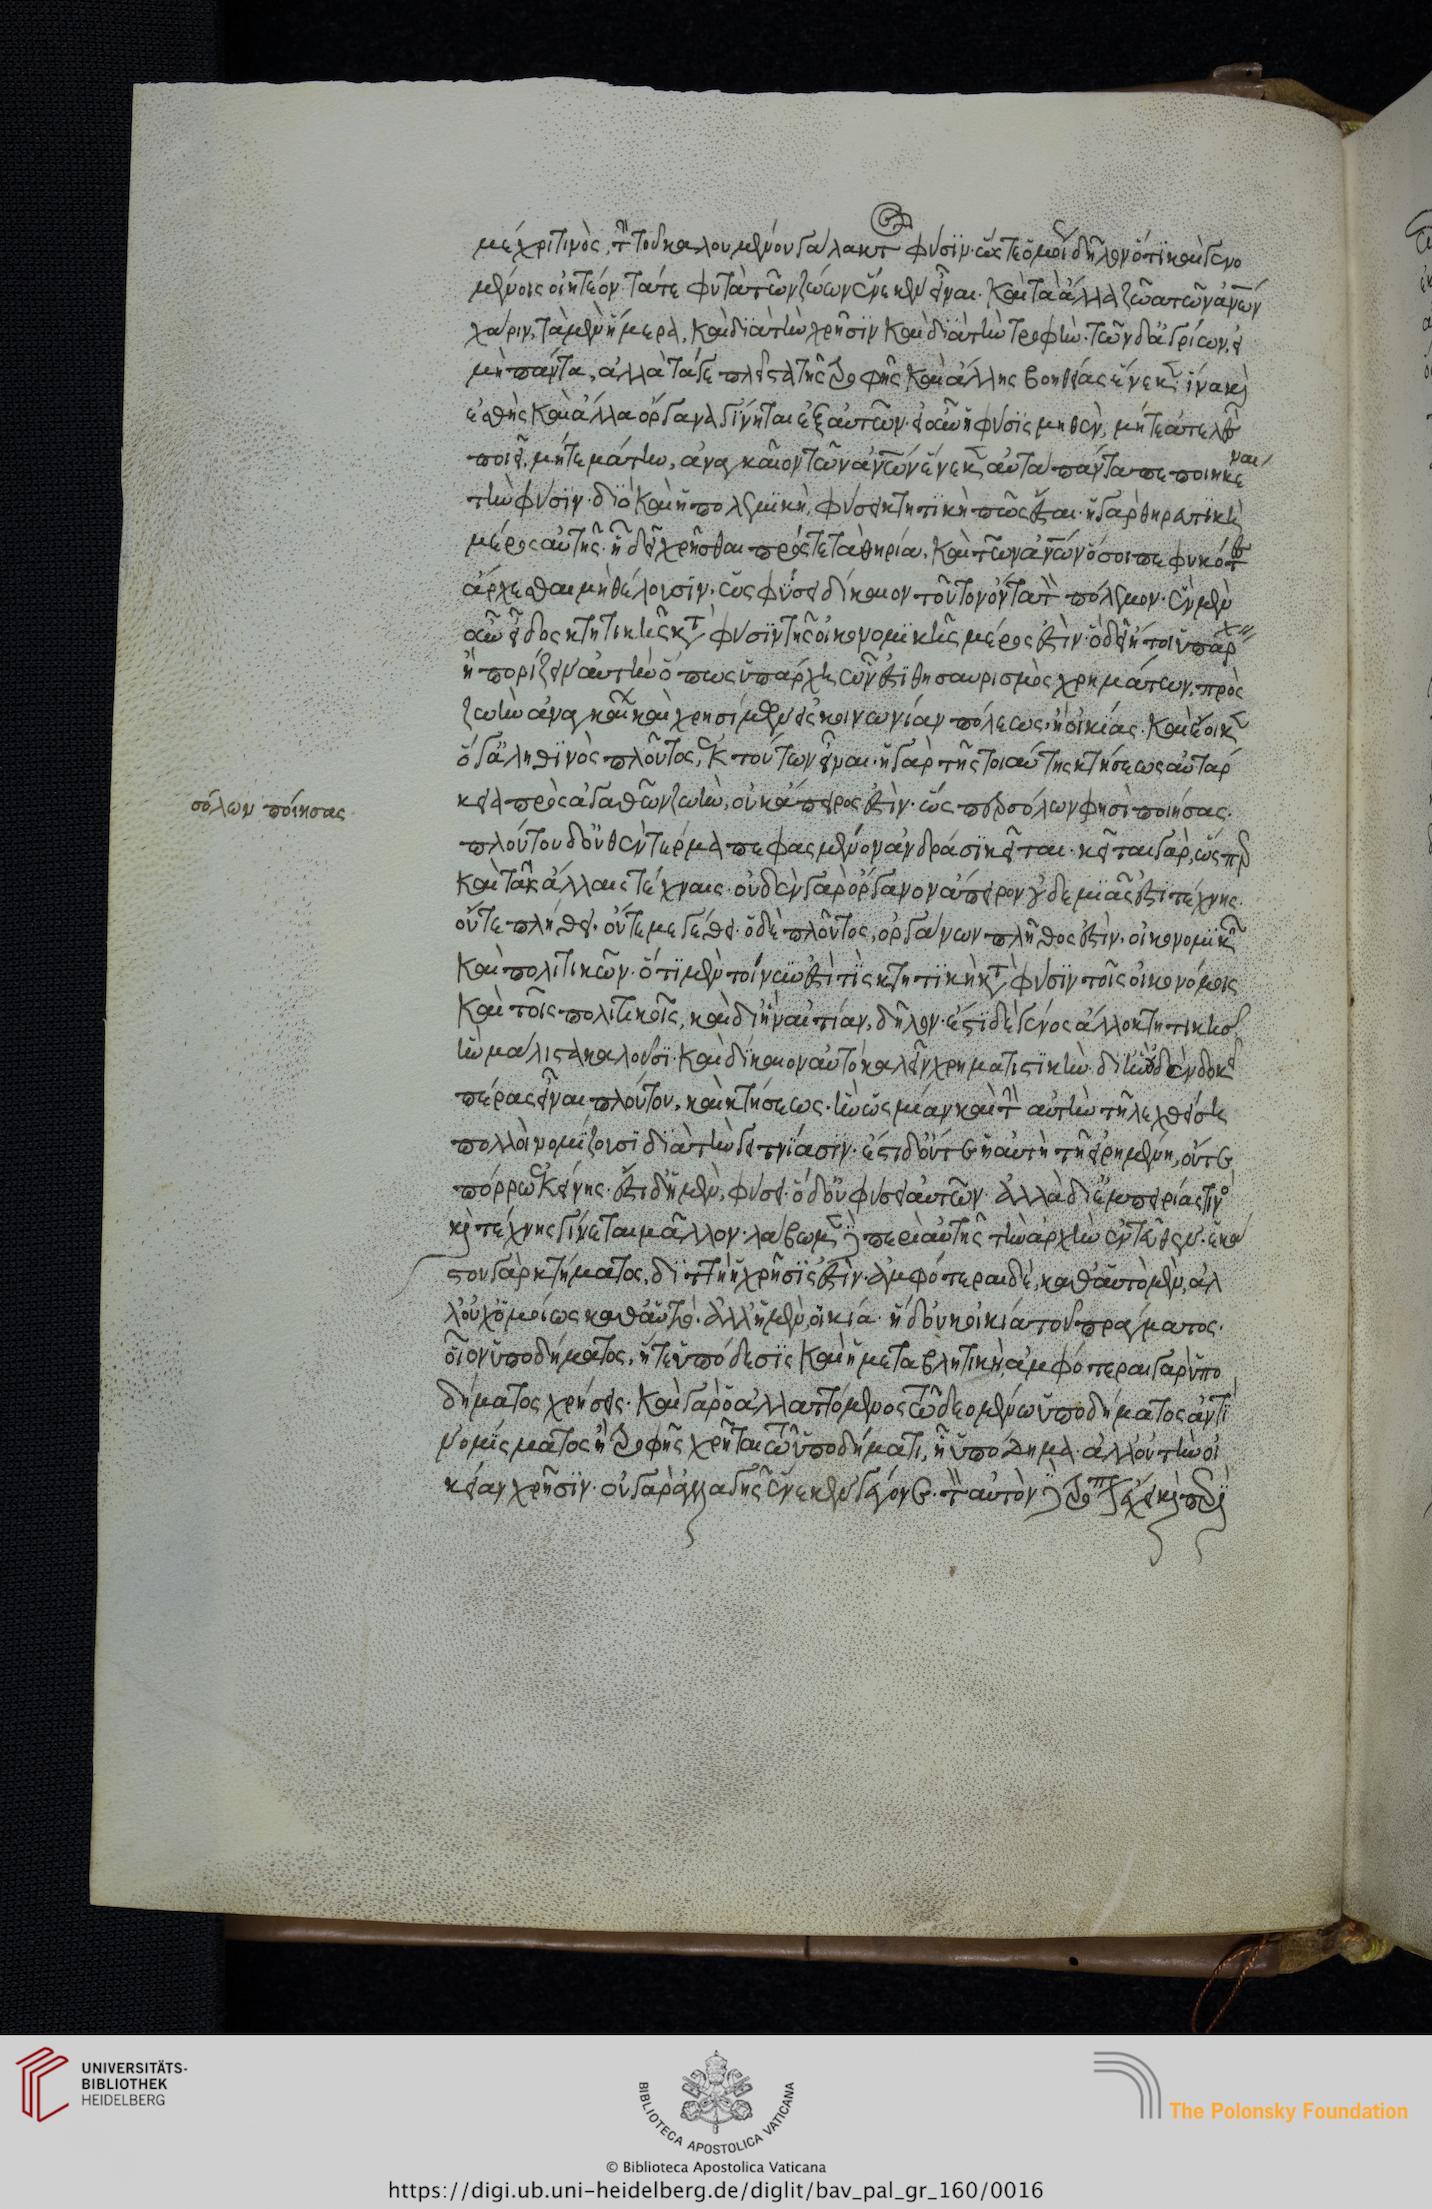 μέχρι τινὸς, τὴν τοῦ καλουμένου γάλακτος φύσιν· ὥστε ὁμοίως δῆλον ὅτι καὶ γενο
μένοις οἰητέον τά τε φυτὰ τῶν ζώων ἕνεκεν εἶναι· καὶ τὰ ἄλλα ζῶα τῶν ἀνθρώπων
χάριν, τὰ μὲν ἥμερα, καὶ διὰ τὴν χρῆσιν καὶ διὰ τὴν τροφήν· τῶν δ' ἀγρίων, εἰ
μὴ πάντα, ἀλλὰ τά γε πλεῖστα τῆς τροφῆς καὶ ἄλλης βοηθείας ἕνεκεν· ἵνα καὶ
ἐσθὴς καὶ ἄλλα ὄργανα γίνηται ἐξ αὐτῶν· εἰ οὖν ἡ φύσις μηθὲν, μήτε ἀτελὲς
ποιεῖ, μήτε μάτην, ἀναγκαῖον τῶν ἀνθρώπων ἕνεκεν αὐτὰ πάντα πεποιηκέναι
τὴν φύσιν· διὸ καὶ ἡ πολεμικὴ, φύσει κτητικὴ πῶς ἔσται· ἡ γὰρ θηρατικὴ
μέρος αὐτῆς· ᾗ δεῖ χρῆσθαι πρός τε τὰ θηρία, καὶ τῶν ἀνθρώπων ὅσοι πεφυκότες
ἄρχεσθαι μὴ θέλουσιν· ὡς φύσει δίκαιον τοῦτον ὄντα τὸν πόλεμον· ἓν μὲν
οὖν εἶδος κτητικῆς κατὰ φύσιν τῆς οἰκονομικῆς μέρος ἐστὶν· ὃ δεῖ ἤτοι ὑπάρχειν
ἢ πορίζειν αὐτὴν ὅπως ὑπάρχῃ ὧν ἐστι θησαυρισμὸς χρημάτων, πρὸς
ζωὴν ἀναγκαίων καὶ χρησίμων εἰς κοινωνίαν πόλεως, ἢ οἰκίας. καὶ ἔοικεν
ὅ γ' ἀληθινὸς πλοῦτος, ἐκ τούτων εἶναι· ἡ γὰρ τῆς τοιαύτης κτήσεως αὐτάρ
κεια πρὸς ἀγαθῶν ζωὴν, οὐκ ἄπειρος ἐστὶν· ὥσπερ σόλων φησὶ ποιήσας.
σόλων ποίησας
πλούτου δ' οὐθὲν τέρμα πεφασμένον ἀνδράσι κεῖται· κεῖται γὰρ, ὥσπερ
καὶ ταῖς ἄλλαις τέχναις· οὐδὲν γὰρ ὄργανον ἄπειρον οὐδεμιᾶς ἐστι τέχνης.
οὔτε πλήθει· οὔτε μεγέθει· ὁ δὲ πλοῦτος, ὀργάνων πλῆθος ἐστὶν· οἰκονομικῶν
καὶ πολιτικῶν· ὅτι μὲν τοίνυν ἐστί τις κτητικὴ κατὰ φύσιν τοῖς οἰκονόμοις
καὶ τοῖς πολιτικοῖς, καὶ δι' ἣν αἰτίαν, δῆλον· ἔστι δὲ γένος ἄλλο κτητικῆς
ἣν μάλιστα καλοῦσι· καὶ δίκαιον αὐτὸ καλεῖν χρηματιστικήν· δι' ἣν οὐδὲν δοκεῖ
πέρας εἶναι πλούτου, καὶ κτήσεως· ἣν ὡς μίαν καὶ τὴν αὐτὴν τῇ λεχθείσῃ
πολλοὶ νομίζουσι διὰ τὴν γειτνίασιν· ἔστι δ' οὔτε ἡ αὐτὴ τῇ εἰρημένῃ, οὔτε
πόρρω ἐκείνης· ἔστι δ' ἡ μὲν, φύσει· ἡ δ' οὐ φύσει αὐτῶν· ἀλλὰ δι' ἐμπειρίας τινὸς
καὶ τέχνης γίνεται μᾶλλον· λάβωμεν δὲ περὶ αὐτῆς τὴν ἀρχὴν ἐντεῦθεν· ἑκά
στου γὰρ κτήματος, διττὴ ἡ χρῆσις ἐστίν· ἀμφότεραι δὲ, καθ' αὑτὸ μὲν, ἀλ
λ' οὐχ ὁμοίως καθ' αὑτό. ἀλλ' ἡ μὲν, οἰκεία· ἡ δ' οὐκ οἰκεία τοῦ πράγματος.
οἷον ὑποδήματος, ἥ τε ὑπόδεσις καὶ ἡ μεταβλητική, ἀμφότεραι γὰρ ὑπο
δήματος χρήσεις· καὶ γὰρ ὁ ἀλλαττόμενος τῷ δεομένῳ ὑποδήματος ἀντὶ
νομίσματος ἢ τροφῆς χρῆται τῷ ὑποδήματι, ᾗ ὑπόδημα· ἀλλ' οὐ τὴν οἰ
κείαν χρῆσιν· οὐ γὰρ ἀλλαγῆς ἕνεκεν γέγονε· τὸν αὐτὸν δὲ τρόπον ἔχει καὶ περὶ
UNIVERSITÄTS-
BIBLIOTHEK
HEIDELBERG
BIBLIOTECA APOSTOLICA VATICANA
© Biblioteca Apostolica Vaticana
The Polonsky Foundation
https://digi.ub.uni-heidelberg.de/diglit/bav_pal_gr_160/0016